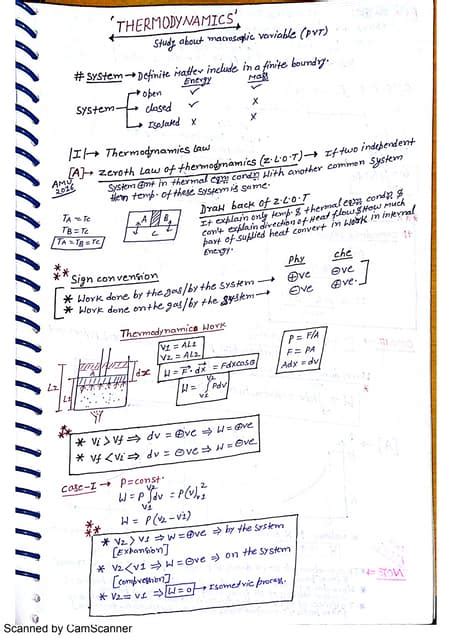 'THERMODYNAMICS'
Study about macroscopic variable (PVT)
# System → Definite Matter include in a finite boundry.
Energy Mass
System → open ✓ ✓
→ closed ✓ x
→ Isolated x x
|I|→ Thermodynamics Law
[A]→ Zeroth Law of thermodynamics (Z.L.O.T) → If two independent
System are in thermal eqm condn with another common system
then temp. of these system is same.
AMU
TA = TC
TB = TC
TA = TB = TC
A B
C
Draw back of Z.L.O.T
It explain only temp. & thermal eqm condn &
can't explain direction of Head flow & How much
part of supplied heat convert in work in internal
Energy.
** Sign convension
Phy che
* Work done by the gas/by the system → ⊕ve ⊖ve
* Work done on the gas/by the system → ⊖ve ⊕ve
Thermodynamics Work
V1 = AL1
V2 = AL2
W = F.dx = Fdx cosθ
W = ∫ Pdv
V2
V1
P = F/A
F = PA
Adx = dv
dx
L2
L1
** * Vi > Vf ⇒ dv = ⊕ve ⇒ W = ⊕ve
* Vf < Vi ⇒ dv = ⊖ve ⇒ W = ⊖ve
Case-I → P = const.
W = P ∫ dv = P(V)
V2
V1
W = P(V2 - V1)
** * V2 > V1 ⇒ W = ⊕ve ⇒ by the System
[Expansion]
* V2 < V1 ⇒ W = ⊖ve ⇒ on the System
[compression]
* V2 = V1 ⇒ W = 0 → Isometric process.
Scanned by CamScanner